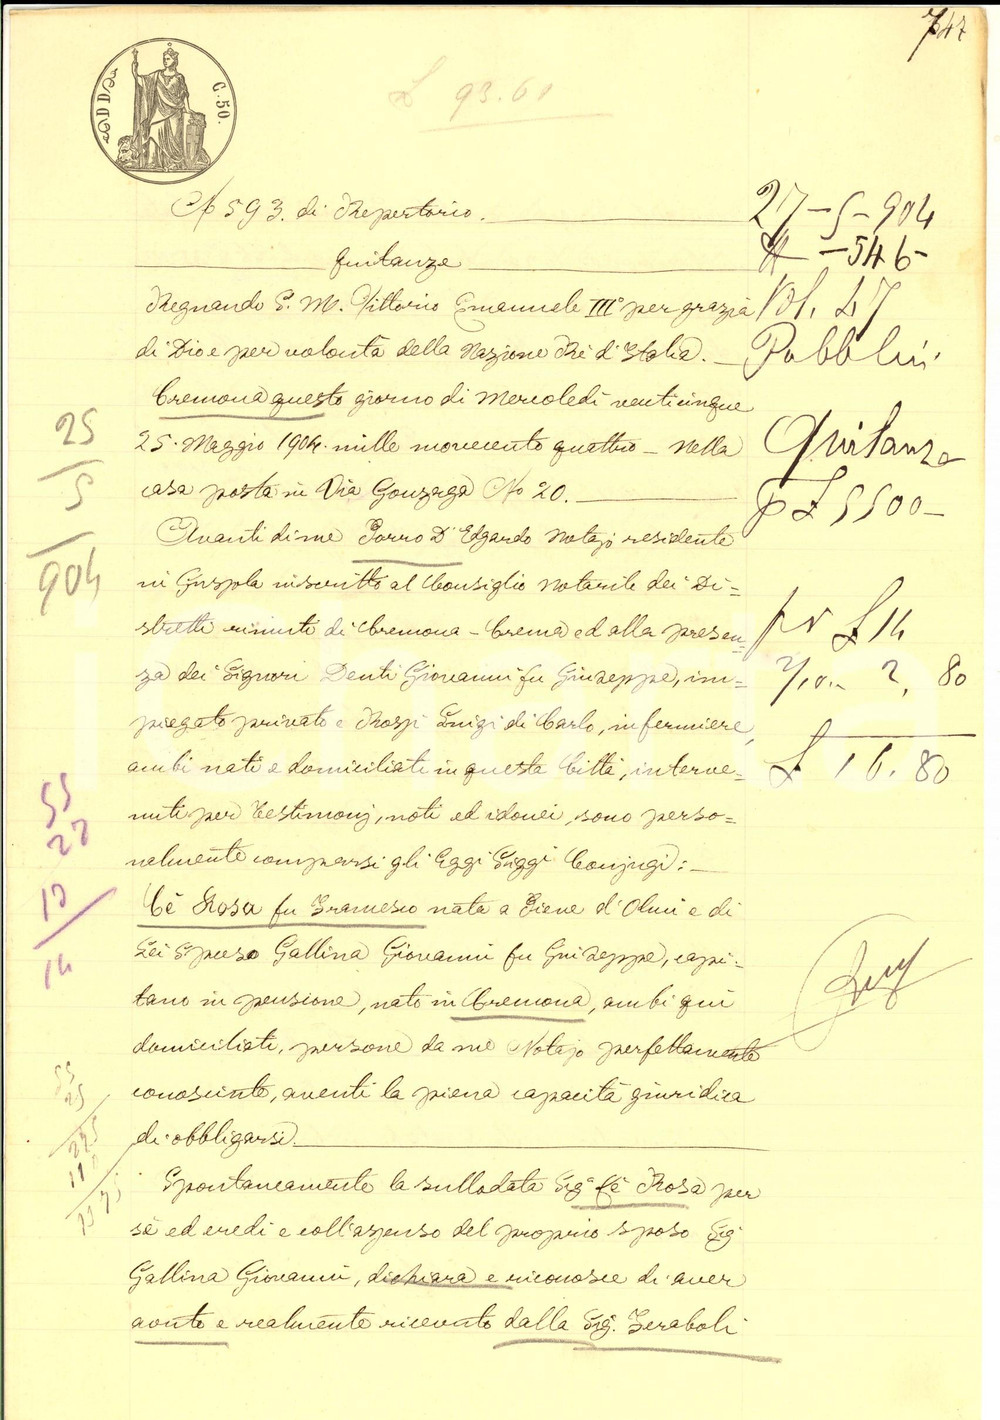 747
C. 50.
£ 93.61
N 593. di Repertorio.
Quitanze
Regnando S. M. Vittorio Emanuele III° per grazia
di Dio e per volontà della Nazione Ré d'Italia.
Cremona questo giorno di Mercoledì venticinque
25. Maggio 1904. mille novecento quattro – nella
casa posta in Via Gonzaga No 20.
Avanti di me Porro Dr Edgardo Notajo residente
in Gussola inscritto al Consiglio notarile dei Di=
stretti riuniti di Cremona – Crema ed alla presen=
za dei Signori Denti Giovanni fu Giuseppe, im=
piegato privato e Rossi Luigi di Carlo, infermiere,
ambi nati e domiciliati in questa Città, interve=
nuti per testimonj, noti ed idonei, sono perso=
nalmente comparsi gli Eggi Siggi Conjugi:
Cè Rosa fu Francesco nata a Pieve d'Olmi e di
Lei Sposo Gallina Giovanni fu Giuseppe, capi=
tano in pensione, nato in Cremona, ambi qui
domiciliati, persone da me Notajo perfettamente
conosciute, aventi la piena capacità giuridica
di obbligarsi.
Spontaneamente la sullodata Sigª Cè Rosa per
sè ed eredi e coll'assenso del proprio sposo Sig
Gallina Giovanni, dichiara e riconosce di aver
avuto e realmente ricevuto dalla Sig. Feraboli
27-5-904
# -546-
Vol. 47
Pubblici
Quitanza
p £ 5500-
£ 14
2/10.- 2, 80
£ 16.80
25
5
904
55
22
13
14
55
25
275
110
1375